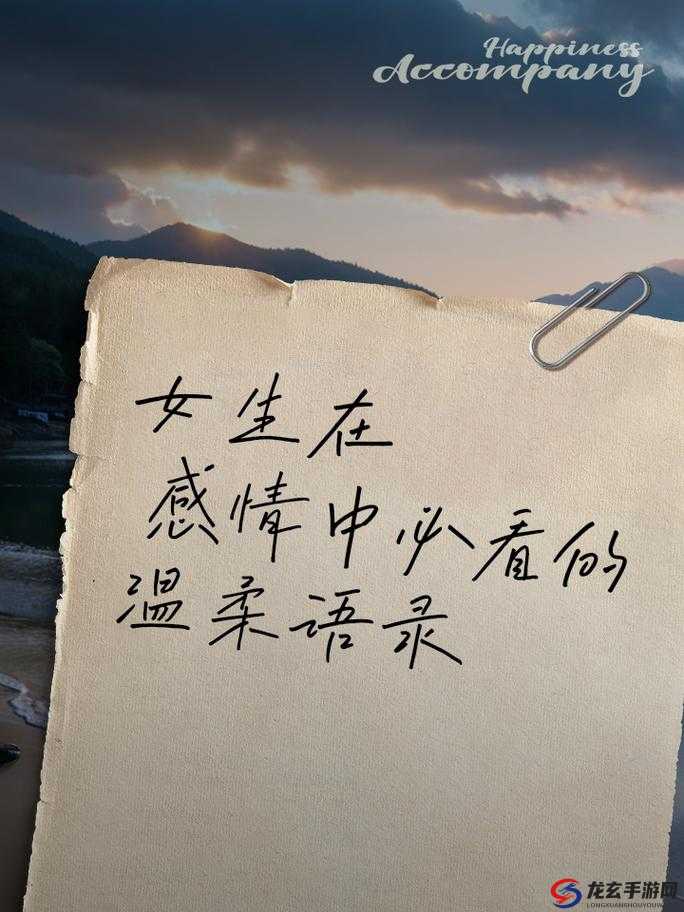 Happiness
Accompany
女生在
感情中必看的
温柔语录
龙玄手游网
LONGXUANSHOUYOUWANG